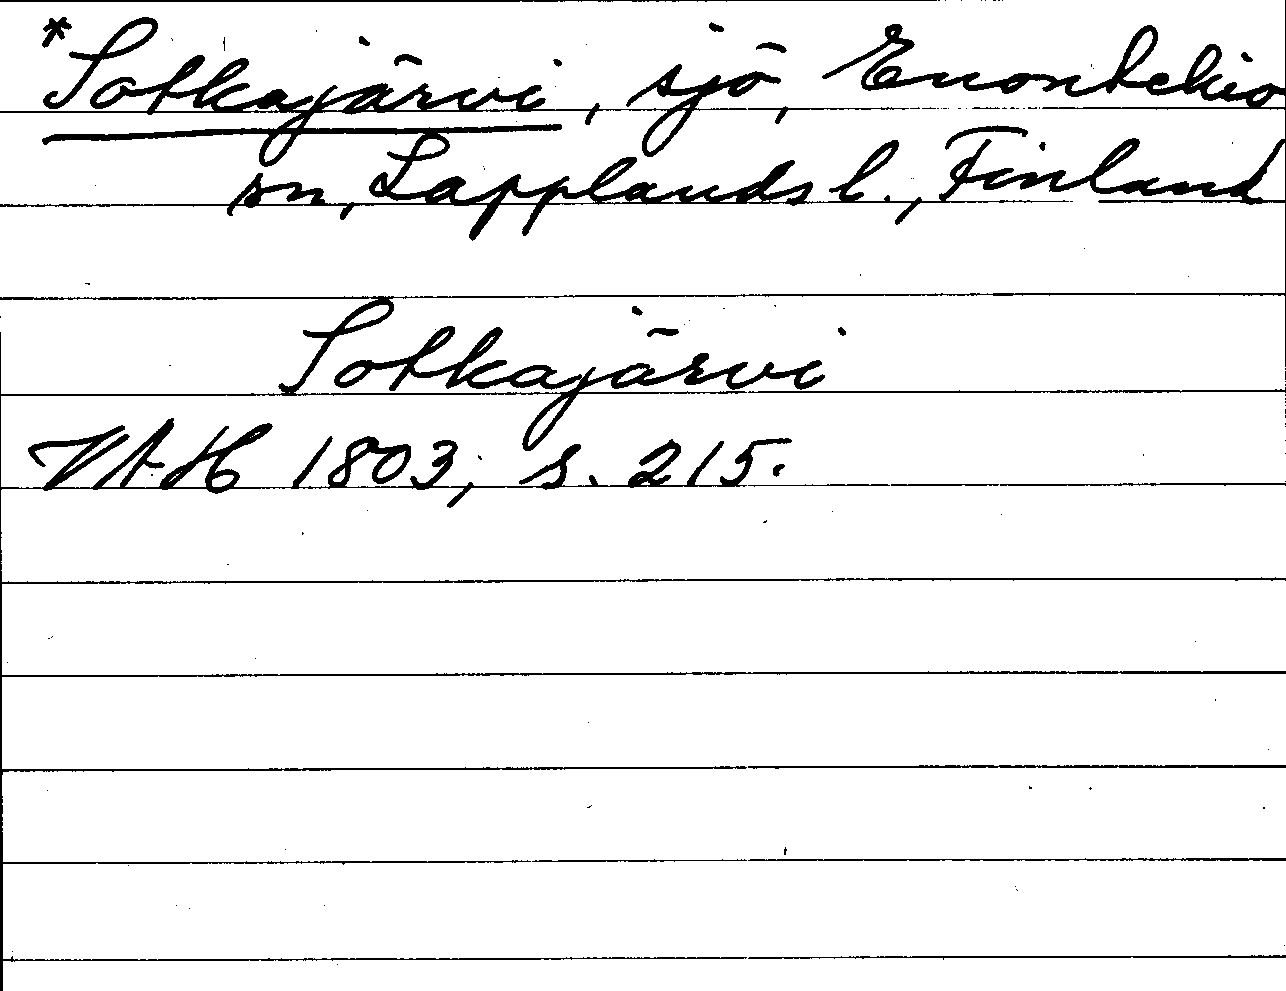 *Sotkajärvi, sjö, Enontekiö
sn, Lapplands l., Finland
Sotkajärvi
VAH 1803, s. 215.